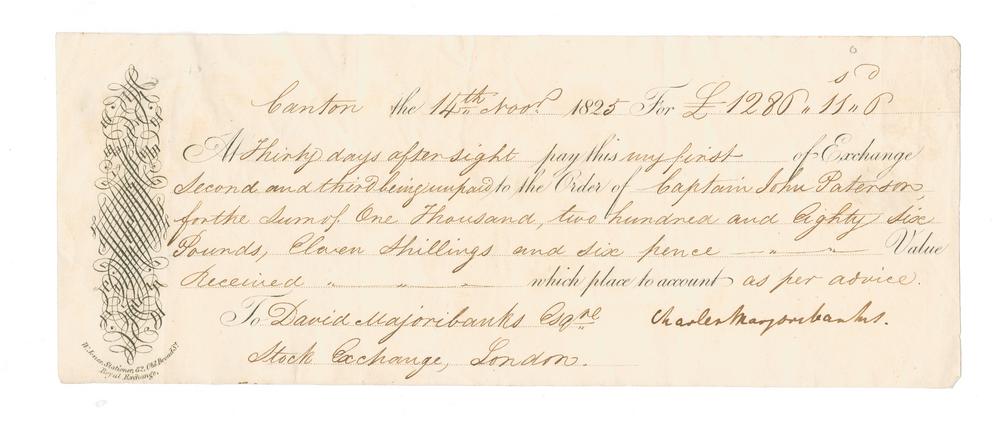 Canton the 14th Novr. 1825 For £1286 " 11 " 6
s d
At Thirty days after sight pay this my first of Exchange
Second and third being unpaid, to the Order of Captain John Paterson
for the Sum of. One Thousand, two hundred and Eighty Six
Pounds, Eleven Shillings and six pence — " — " — Value
Received " — " — " which place to account as per advice.
To David Majoribanks Esqre Charles Marjoribanks.
Stock Exchange, London.
Stationer, 62, Old Broad St.
Royal Exchange.